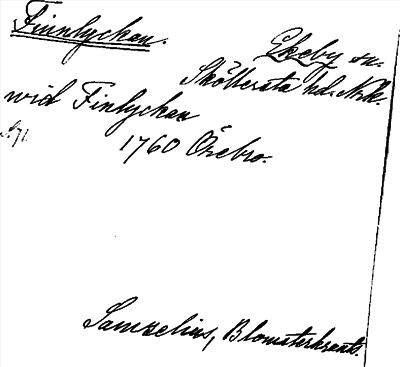 Finnlyckan.
Ekeby sn.
Sköllersta hd. Nrk.
wid Finlyckan
s. 71.
1760 Örebro.
Samzelius, Blomsterkrants.